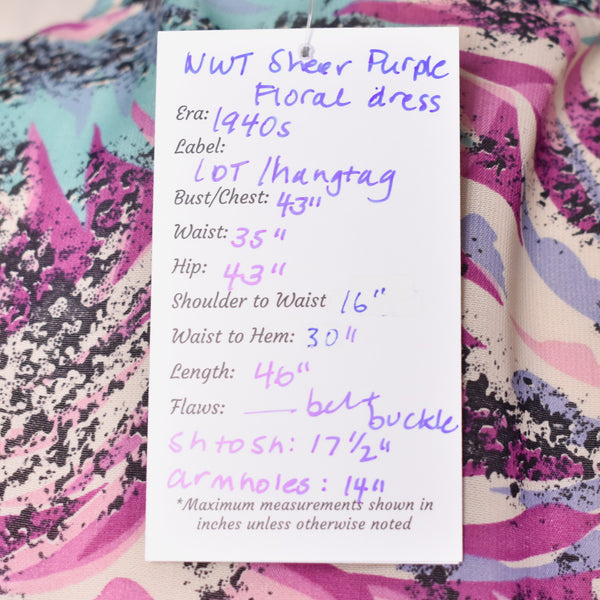 NWT Sheer Purple
Floral dress
Era: 1940s
Label:
LOT /hangtag
Bust/Chest: 43"
Waist: 35"
Hip: 43"
Shoulder to Waist 16"
Waist to Hem: 30"
Length: 46"
Flaws: — belt
buckle
sh to sh: 17 1/2"
armholes: 14"
*Maximum measurements shown in
inches unless otherwise noted